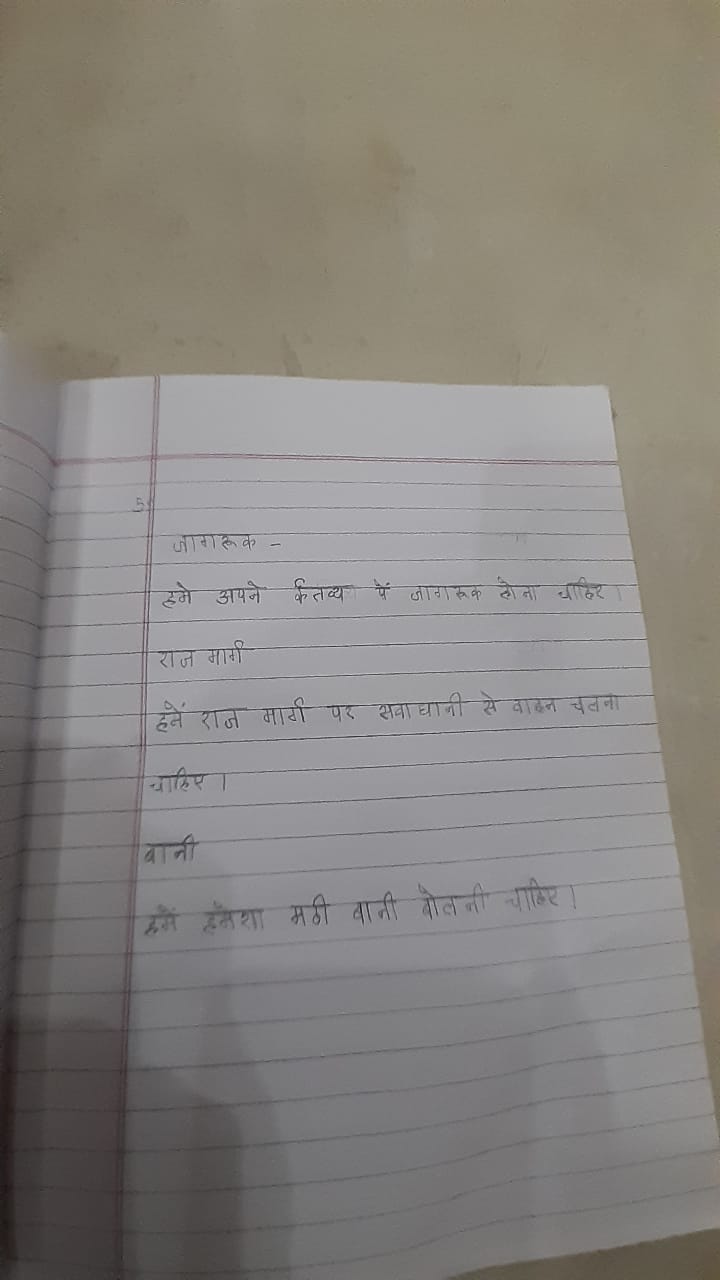 5
जागरूक -
हमे अपने र्कतव्य में जागरूक होना चाहिए।
राज मार्ग
हमें राज मार्ग पर सवाधानी से वाहन चलना
चाहिए।
वानी
हमें हमेशा मठी वानी बोलनी चाहिए।